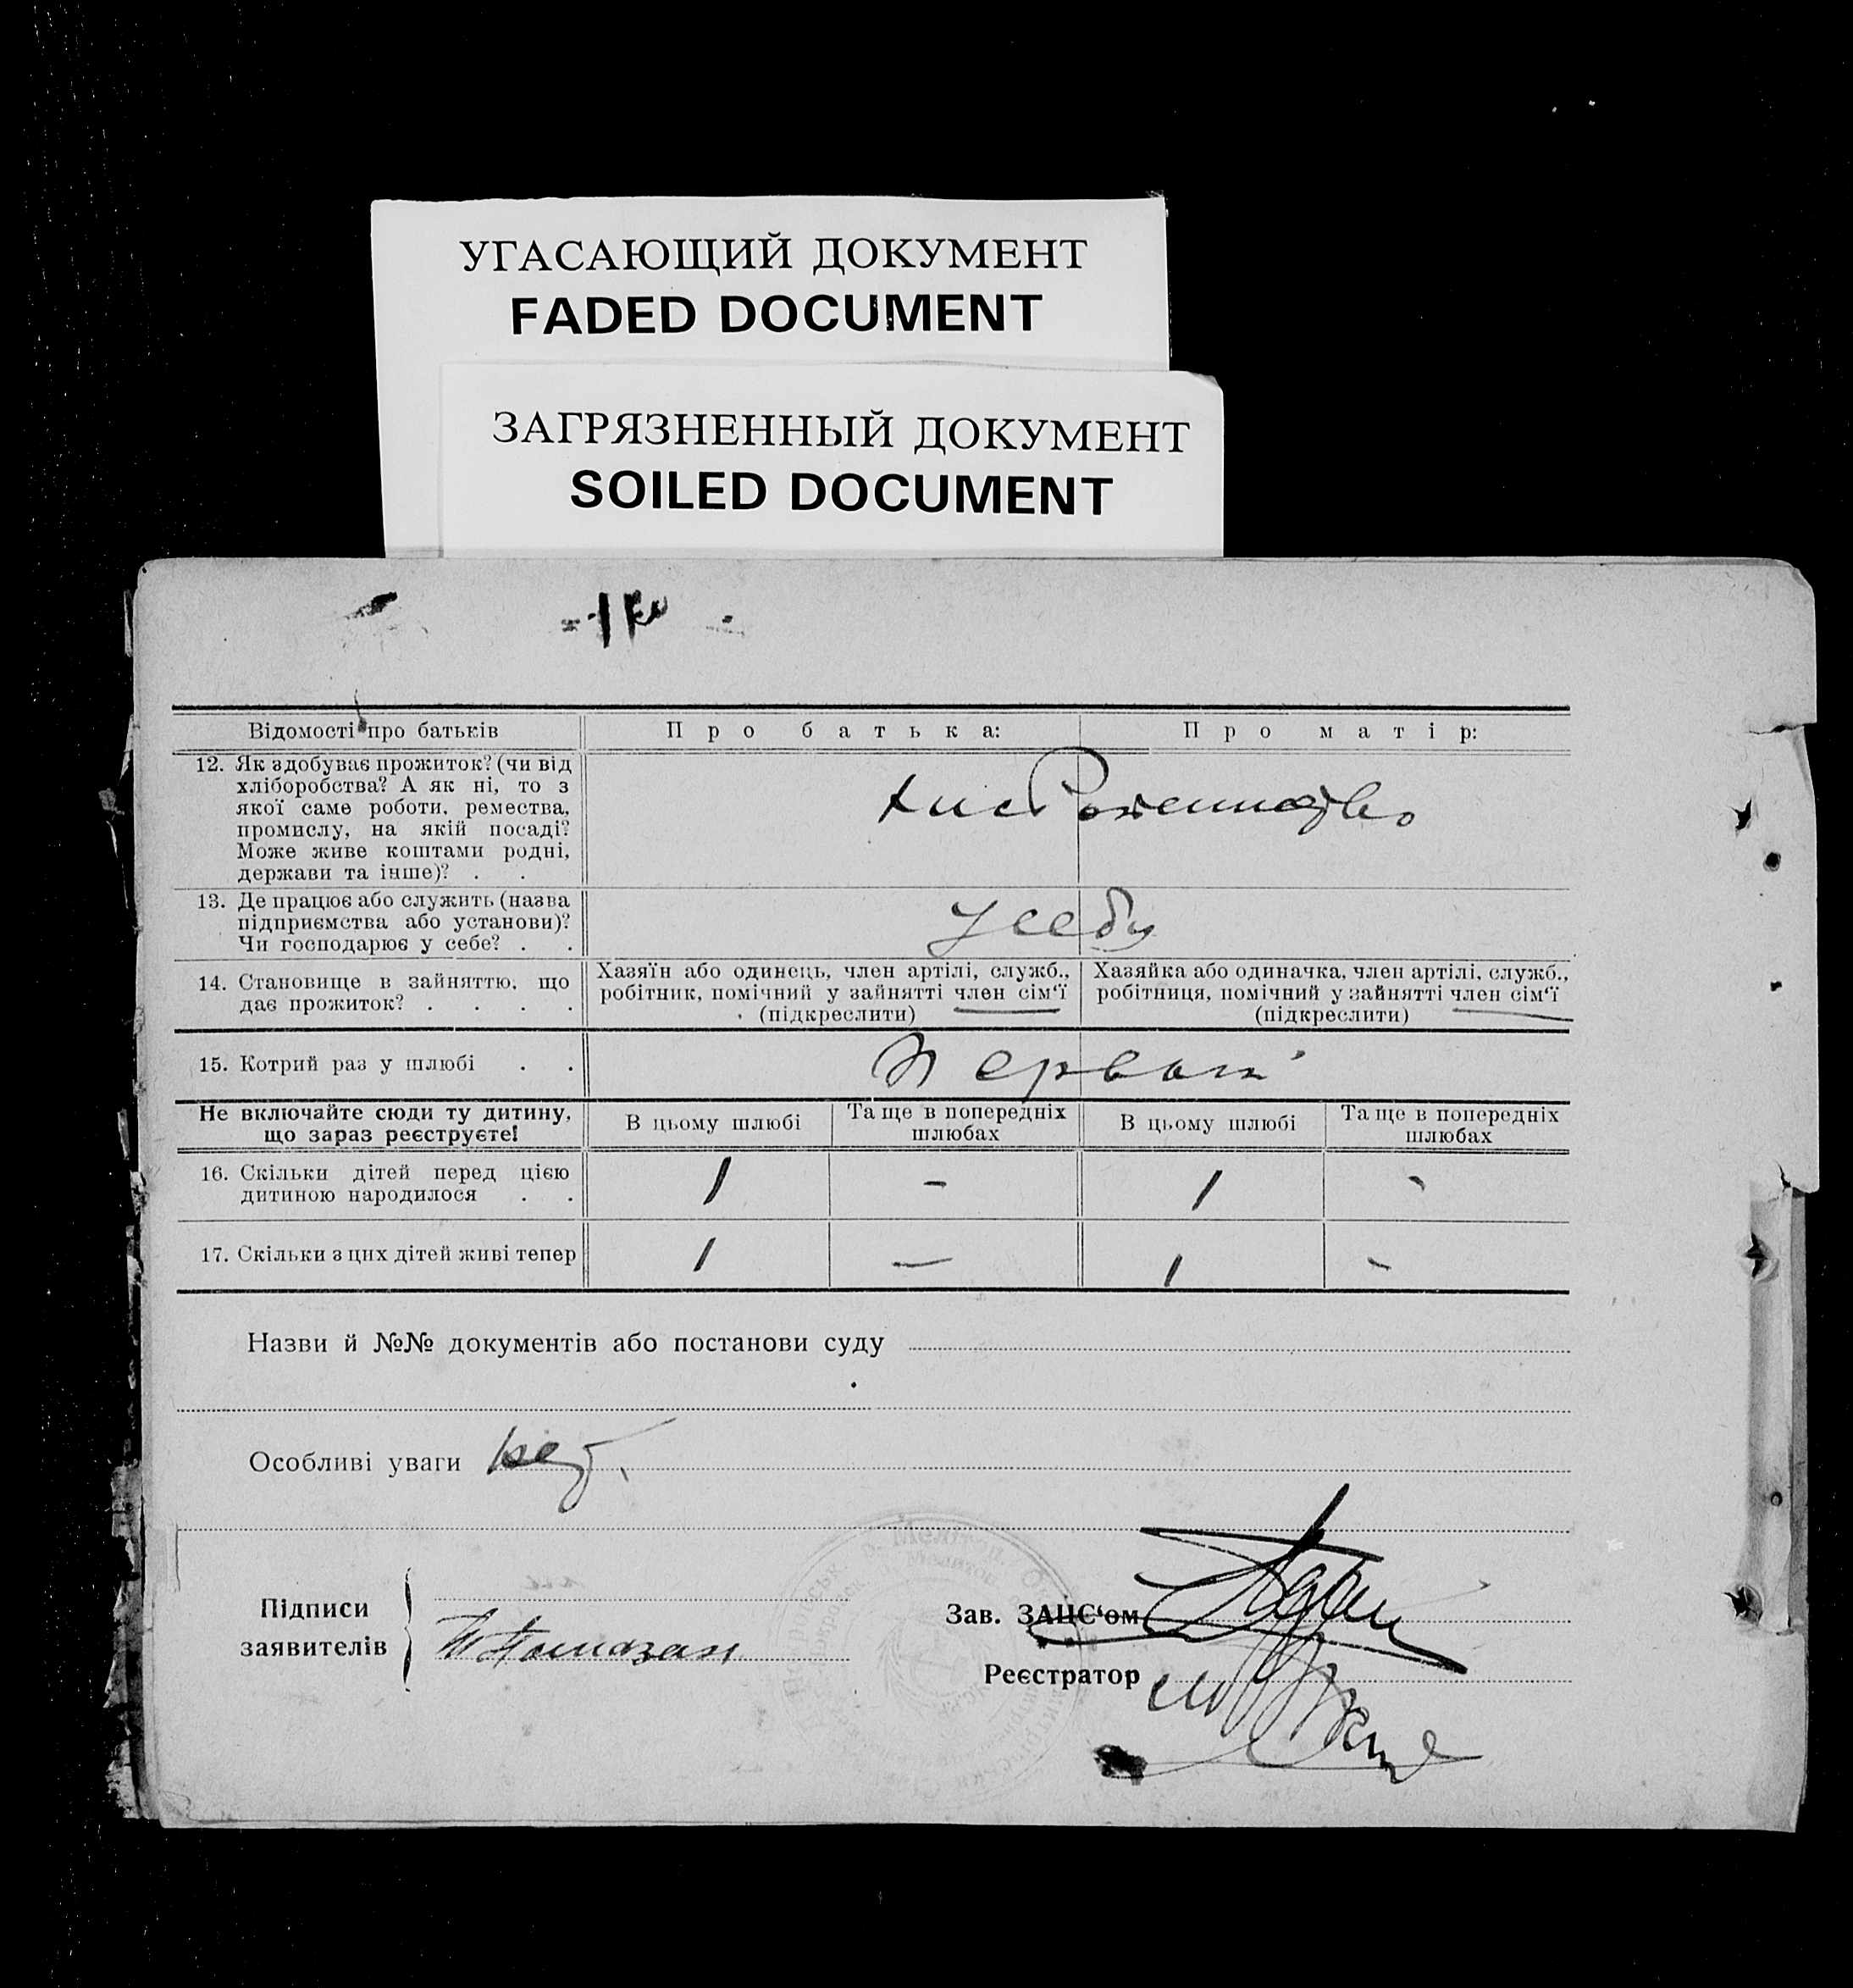 УГАСАЮЩИЙ ДОКУМЕНТ
FADED DOCUMENT
ЗАГРЯЗНЕННЫЙ ДОКУМЕНТ
SOILED DOCUMENT
Відомості про батьків
Про батька:
Про матір:
12. Як здобуває прожиток? (чи від
хліборобства? А як ні, то з
якої саме роботи, ремества,
промислу, на якій посаді?
Може живе коштами родні,
держави та інше)? . .
13. Де працює або служить (назва
підприємства або установи)?
Чи господарює у себе? . .
у себя
14. Становище в зайняттю, що
дає прожиток? . . . .
Хазяїн або одинець, член артілі, служб.,
робітник, помічний у зайнятті член сім‘ї
(підкреслити)
Хазяйка або одиначка, член артілі, служб.,
робітниця, помічний у зайнятті член сім‘ї
(підкреслити)
15. Котрий раз у шлюбі . .
Первый
Не включайте сюди ту дитину,
що зараз реєструєте!
В цьому шлюбі
Та ще в попередніх
шлюбах
В цьому шлюбі
Та ще в попередніх
шлюбах
16. Скільки дітей перед цією
дитиною народилося . .
1 - 1 -
17. Скільки з цих дітей живі тепер
1 — 1 -
Назви й №№ документів або постанови суду
Особливі уваги нет.
Підписи
заявителів
Зав. ЗАЦС‘ом
Реєстратор